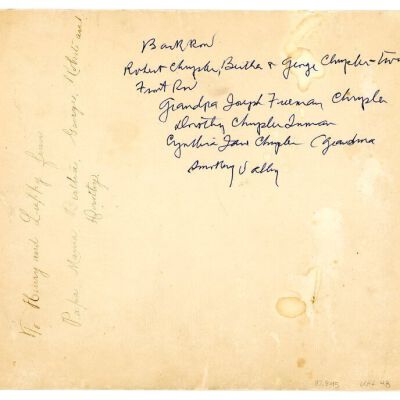 Back Row
Robert Chrysler, Bertha & George Chrysler-
Front Row
Grandpa Joseph Freeman Chrysler
Dorothy Chrysler Inman
Cynthia Jane Chrysler (Grandma
Smokey Valley
To Harry and
Papa Mama Bertha, George, Robert and
Dorothy